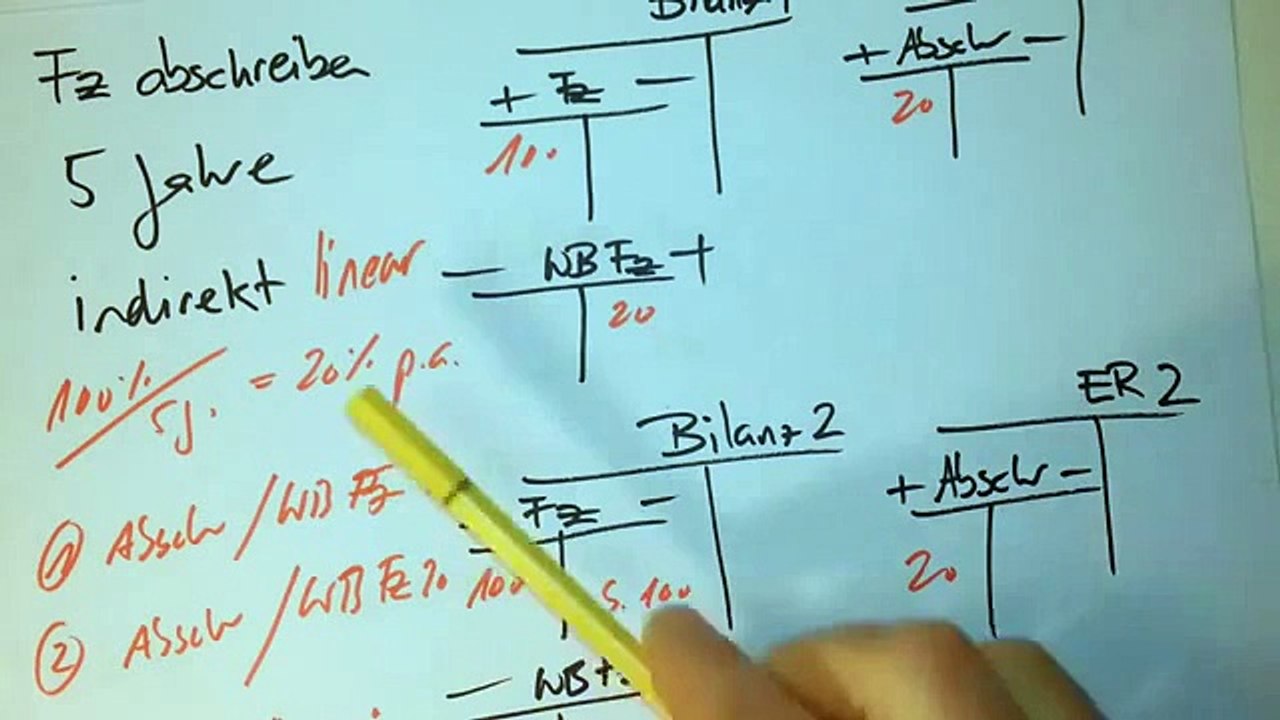 Fz abschreiben
5 Jahre
indirekt linear
100% / 5J. = 20% p.a.
① Abschr / WB Fz
② Abschr / WB Fz 20
Bilanz 1
+ Fz -
100
- WB Fz +
20
+ Abschr -
20
Bilanz 2
Fz -
100 S. 100
- WB
ER 2
+ Abschr -
20